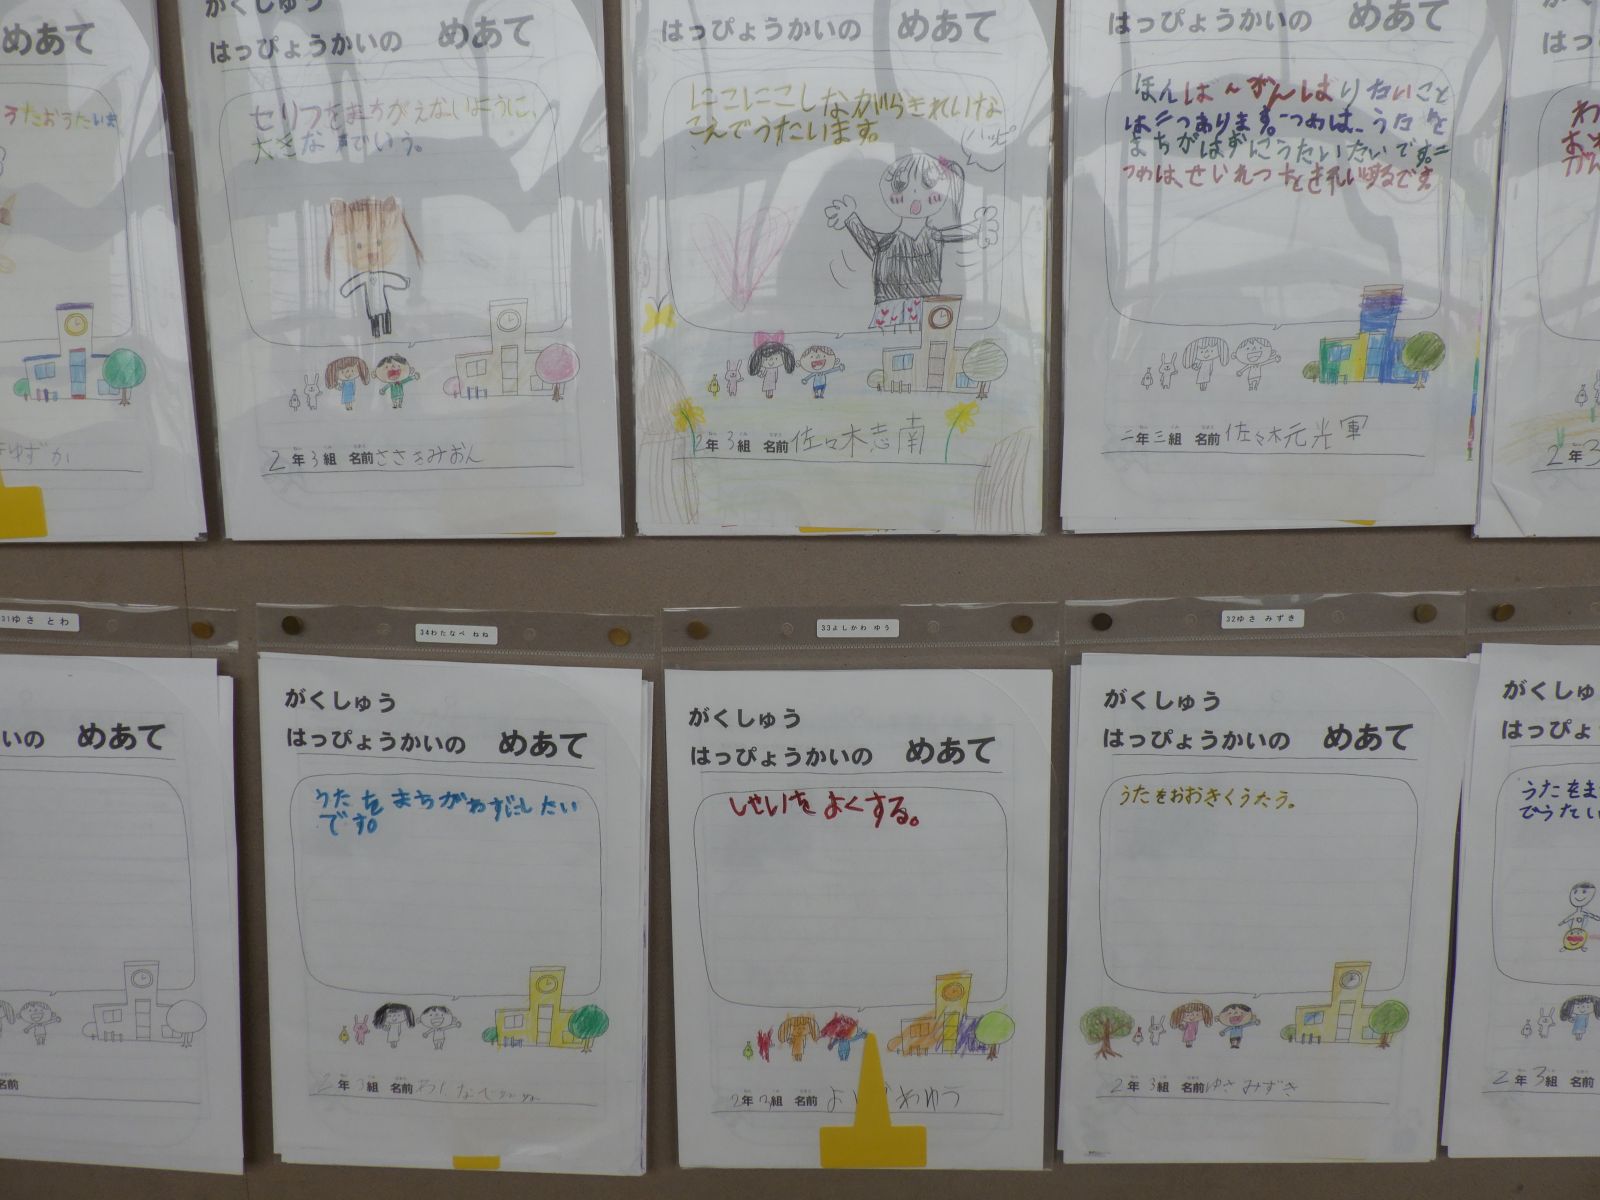 めあて
がくしゅう
はっぴょうかいの めあて
セリフをまちがえないように、
大きな声でいう。
2年3組 名前 ささきみおん
はっぴょうかいの めあて
にこにこしながらきれいな
こえでうたいます。
2年3組 名前 佐々木志南
はっぴょうかいの めあて
ほんばんがんばりたいこと
は二つあります。一つめは、うたを
まちがはずにうたいたいです。二
つめは、せいれつ
二年三組 名前 佐々木元光軍
2年3
31ゆさ とわ
いの めあて
名前
34わたなべ ねね
がくしゅう
はっぴょうかいの めあて
うたをまちがわずにしたい
です。
2年3組 名前 わたなべねね
33よしかわ ゆう
がくしゅう
はっぴょうかいの めあて
しせいをよくする。
2年3組 名前 よ わゆう
32ゆさ みずき
がくしゅう
はっぴょうかいの めあて
うたをおおきくうたう。
2年3組 名前 ゆさみずき
がくしゅ
はっぴょ
うたをま
でうたい
2年3組